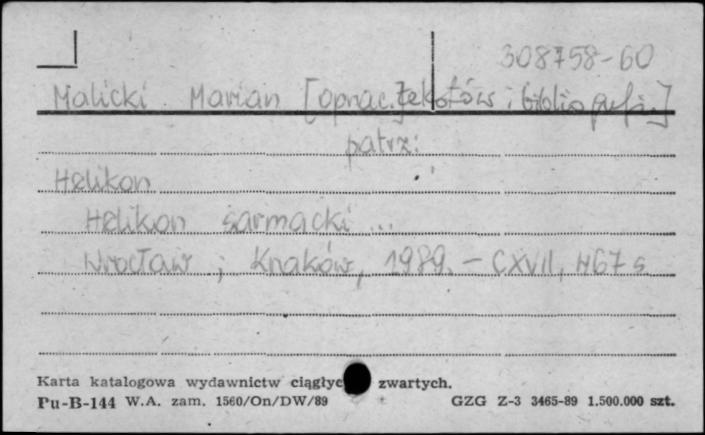 308758-60
Malicki Marian [oprac. tekstów i bibliografi.]
patrz:
Helikon
Helikon sarmacki ...
Wrocław ; Kraków, 1989. - CXVII, 467 s
Karta katalogowa wydawnictw ciągłyc zwartych.
Pu-B-144 W.A. zam. 1560/On/DW/89 GZG Z-3 3465-89 1.500.000 szt.